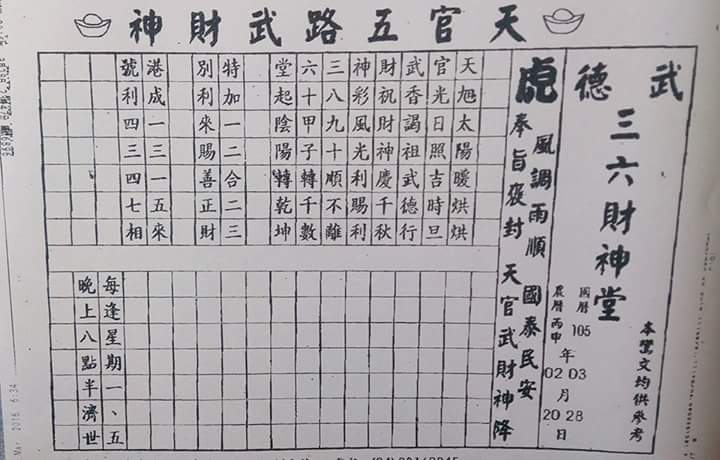 天官五路武財神
武德
三六財神堂
本鸞文均供參考
國曆105年03月28日
農曆丙申02月20日
風調雨順 國泰民安
虎
奉旨褒封 天官武財神降
天旭太陽暖烘烘
官光日照吉時旦
武香謁祖武德行
財祝財神慶千秋
神彩風光利賜利
三八九十順不離
六十甲子轉千數
堂起陰陽轉乾坤
特加一二合二三
別利來賜善正財
港成一三一五來
號利四三四七相
每逢星期一、五
晚上八點半濟世
Mar 2016 6:34